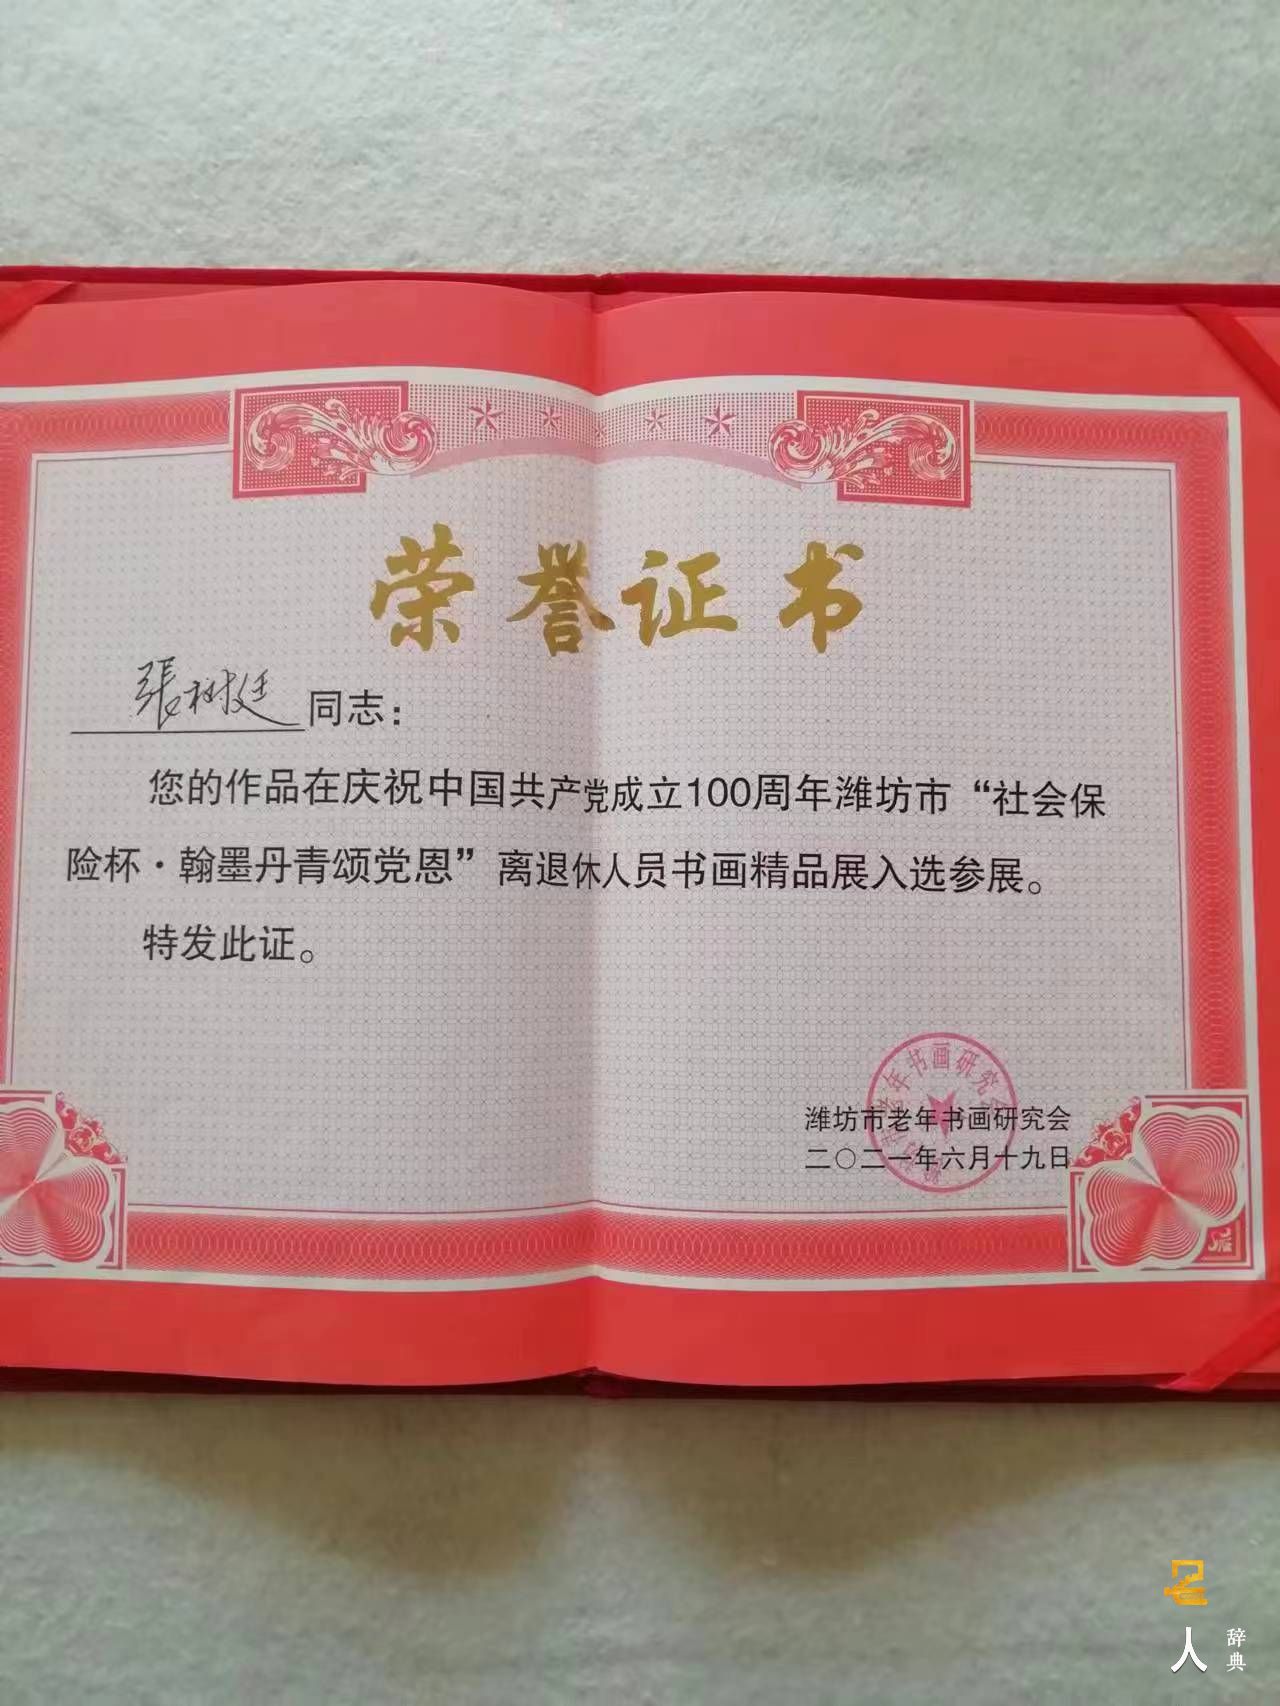 荣誉证书
張树廷同志：
您的作品在庆祝中国共产党成立100周年潍坊市“社会保
险杯·翰墨丹青颂党恩”离退休人员书画精品展入选参展。
特发此证。
潍坊市老年书画研究会
二〇二一年六月十九日
老年书画研究会
名
人
辞典